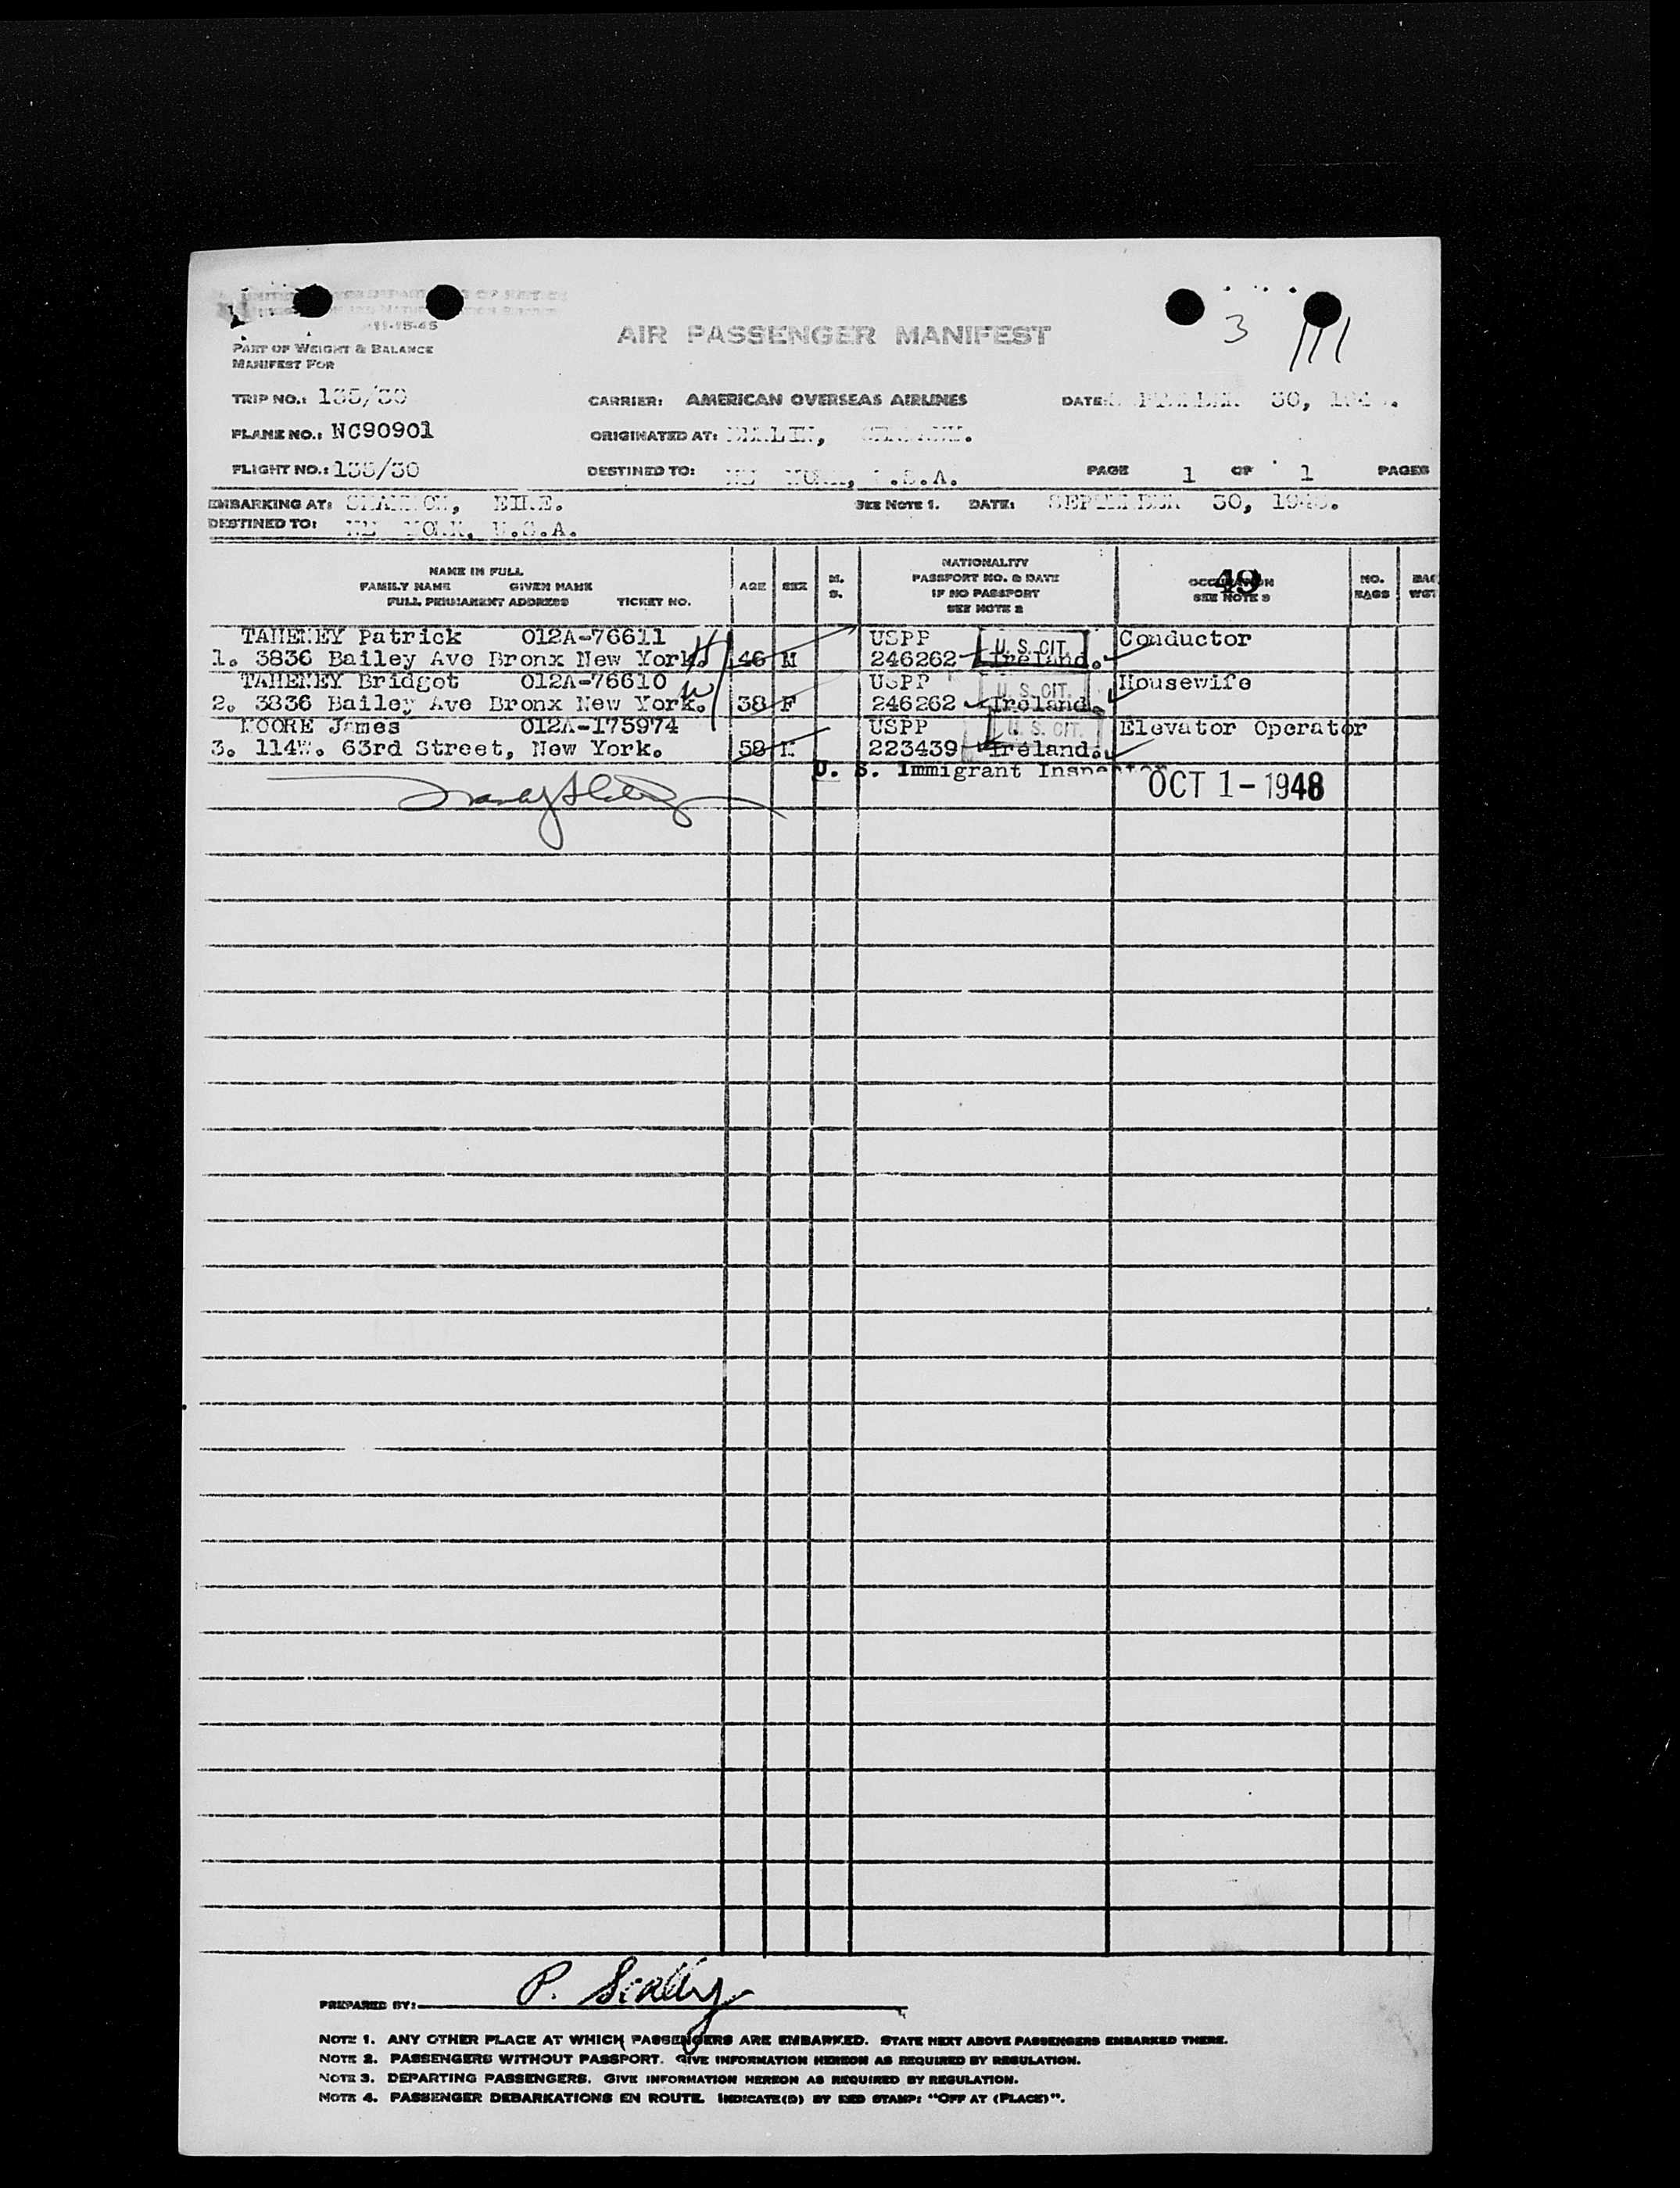 11-15-45
PART OF WEIGHT & BALANCE
MANIFEST FOR
AIR PASSENGER MANIFEST
3
TRIP NO.: 135/30
CARRIER: AMERICAN OVERSEAS AIRLINES
DATE: 30,
PLANE NO.: NC90901
ORIGINATED AT:
FLIGHT NO.: 135/30
DESTINED TO: U.S.A.
PAGE 1 OF 1 PAGES
EMBARKING AT: SHANNON, EIRE.
SEE NOTE 1. DATE: SEPTEMBER 30, 1948.
DESTINED TO: NEW YORK, U.S.A.
NAME IN FULL
FAMILY NAME GIVEN NAME
FULL PERMANENT ADDRESS TICKET NO.
AGE
SEX
M.
S.
NATIONALITY
PASSPORT NO. & DATE
IF NO PASSPORT
SEE NOTE 2
OCCUPATION
SEE NOTE 3
49
NO.
BAGS
BAG
WGT
TAHENEY Patrick 012A-76611 USPP U. S. CIT. Conductor
1. 3836 Bailey Ave Bronx New York. H 46 M 246262 Ireland.
TAHENEY Bridget 012A-76610 USPP U. S. CIT. Housewife
2. 3836 Bailey Ave Bronx New York. W 38 F 246262 Ireland.
MOORE James 012A-175974 USPP U. S. CIT. Elevator Operator
3. 114W. 63rd Street, New York. 58 M 223439 Ireland.
U. S. Immigrant Inspector
OCT 1-1948
PREPARED BY: P. Scally
NOTE 1. ANY OTHER PLACE AT WHICH PASSENGERS ARE EMBARKED. STATE NEXT ABOVE PASSENGERS EMBARKED THERE.
NOTE 2. PASSENGERS WITHOUT PASSPORT. GIVE INFORMATION HEREON AS REQUIRED BY REGULATION.
NOTE 3. DEPARTING PASSENGERS. GIVE INFORMATION HEREON AS REQUIRED BY REGULATION.
NOTE 4. PASSENGER DEBARKATIONS EN ROUTE. INDICATE(D) BY RED STAMP: "OFF AT (PLACE)".